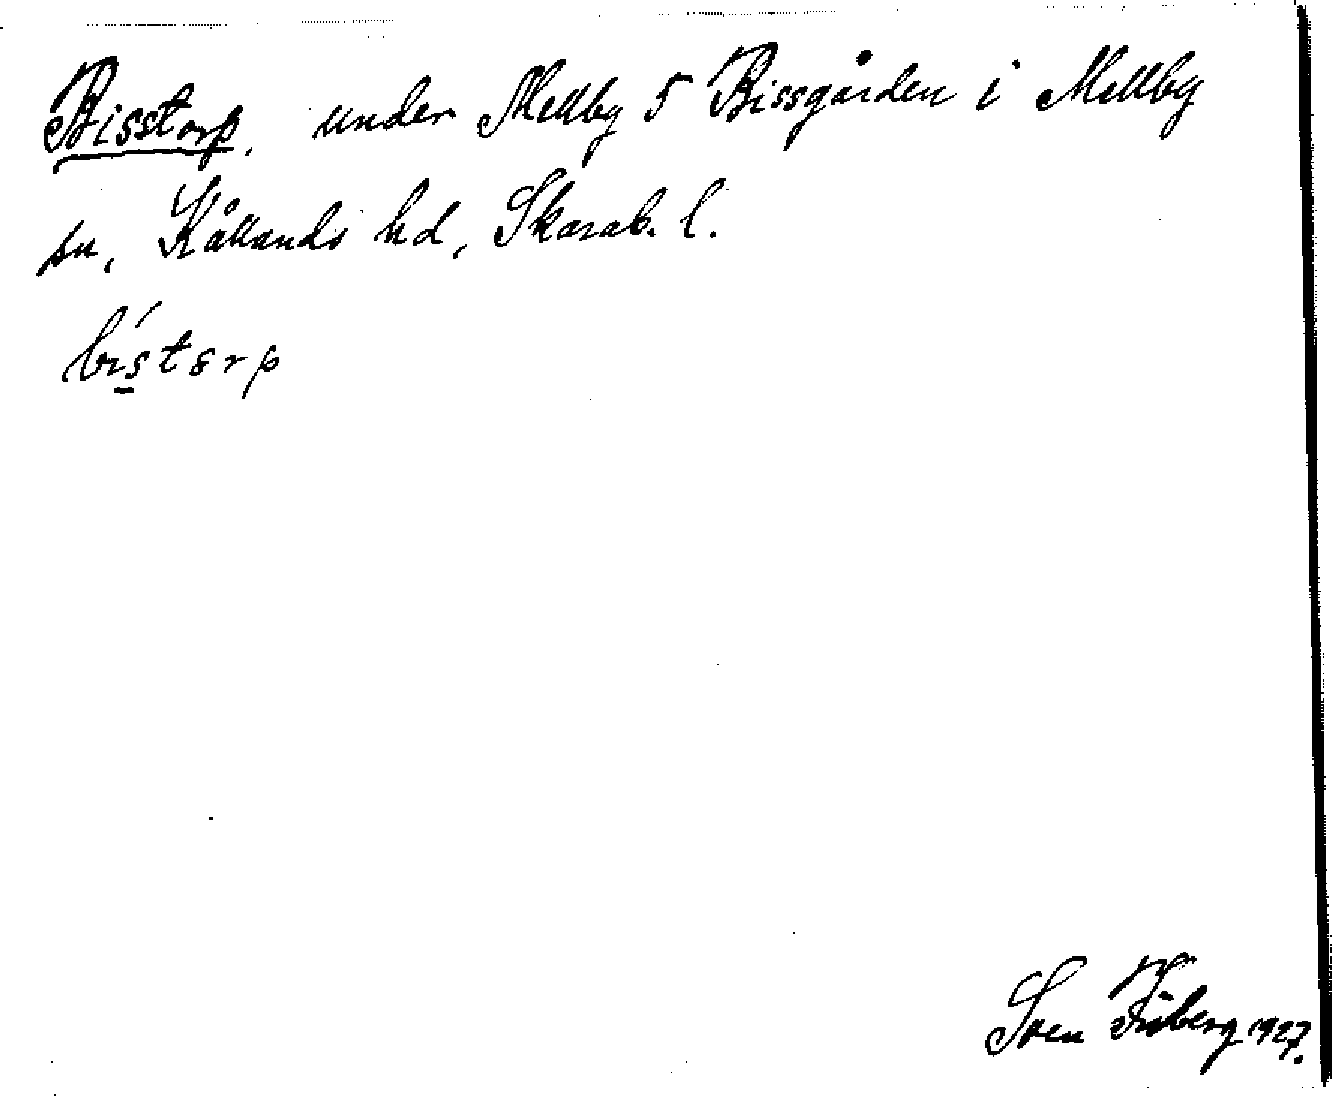 Bisstorp, under Mellby 5 Bissgården i Mellby
sn, Kållands hd, Skarab. l.
bístɛrp
Sven Fröberg 1927.